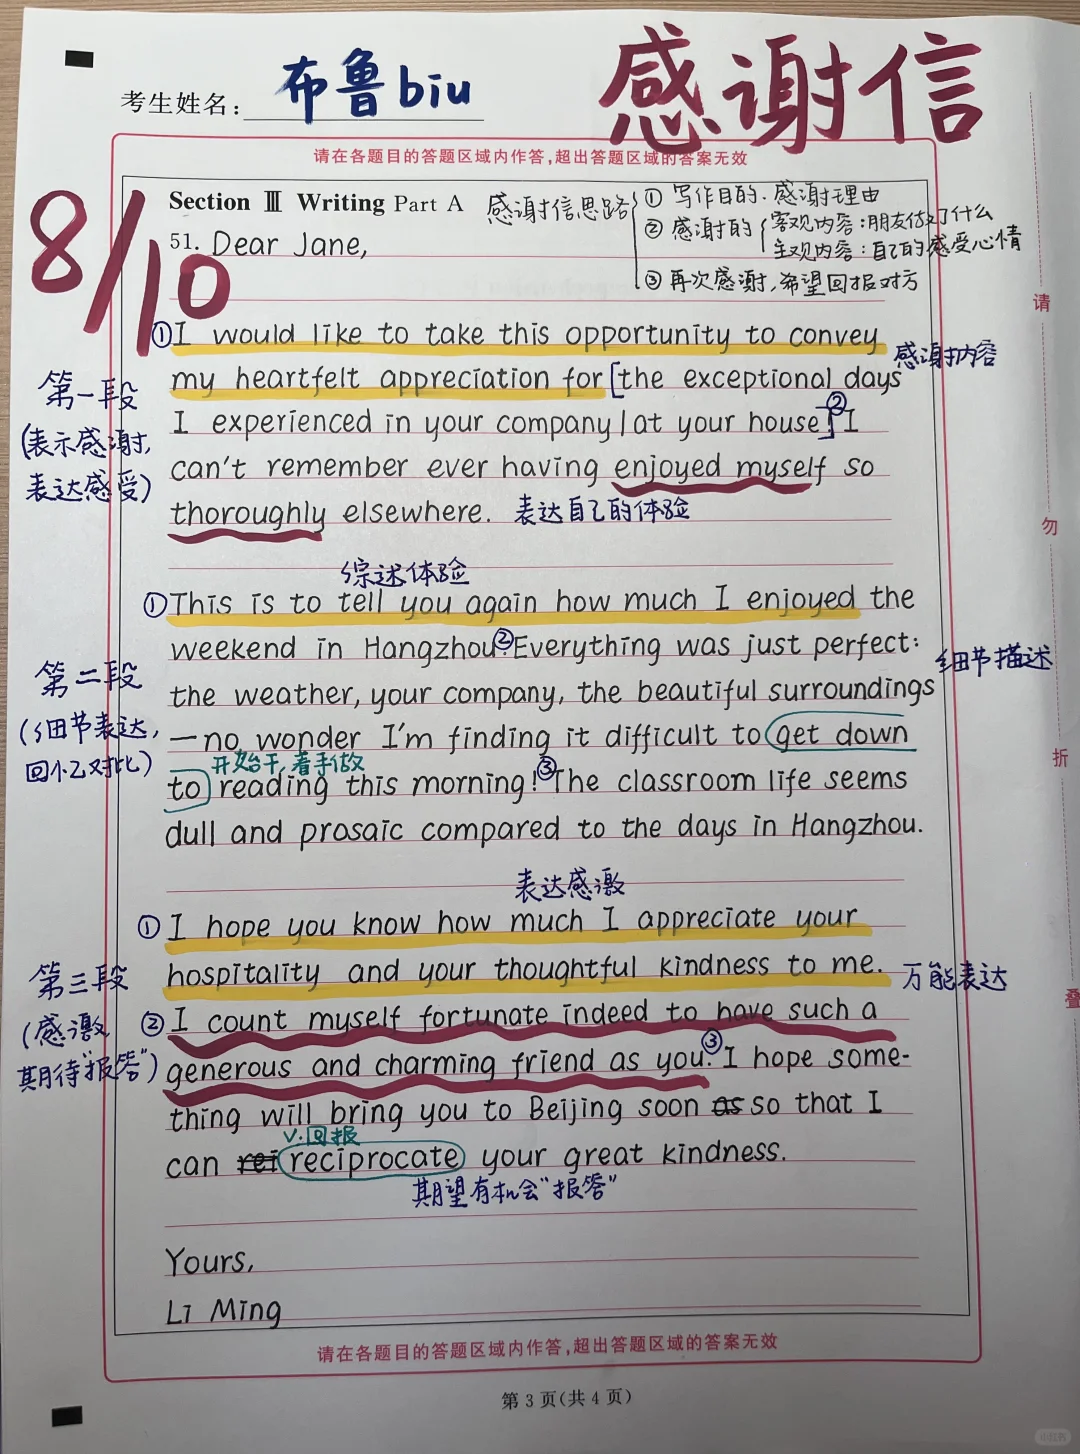 感谢信
考生姓名: 布鲁biu
请在各题目的答题区域内作答,超出答题区域的答案无效
8/10
Section Ⅲ Writing Part A
感谢信思路
① 写作目的.感谢理由
② 感谢的
客观内容:朋友做了什么
主观内容:自己的感受心情
③ 再次感谢,希望回报对方
51. Dear Jane,
①I would like to take this opportunity to convey
my heartfelt appreciation for [the exceptional days
感谢内容
I experienced in your company/at your house.]②I
can't remember ever having enjoyed myself so
thoroughly elsewhere. 表达自己的体验
第一段
(表示感谢,
表达感受)
综述体验
①This is to tell you again how much I enjoyed the
weekend in Hangzhou.②Everything was just perfect:
细节描述
the weather, your company, the beautiful surroundings
—no wonder I'm finding it difficult to get down
开始干,着手做
to reading this morning!③The classroom life seems
dull and prosaic compared to the days in Hangzhou.
第二段
(细节表达,
回忆对比)
表达感激
①I hope you know how much I appreciate your
hospitality and your thoughtful kindness to me.
万能表达
②I count myself fortunate indeed to have such a
generous and charming friend as you.③I hope some-
thing will bring you to Beijing soon as so that I
v.回报
can rei reciprocate your great kindness.
期望有机会"报答"
第三段
(感激
期待"报答")
Yours,
Li Ming
请在各题目的答题区域内作答,超出答题区域的答案无效
第 3 页(共 4 页)
请
勿
折
叠
小红书